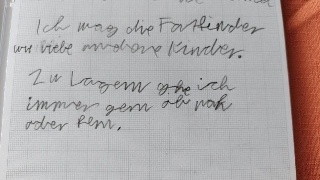 Ich mag die Farlinder
wi liebe andere Kinder.
Zu Lagern gehe ich
immer gern ob nah
oder fern.